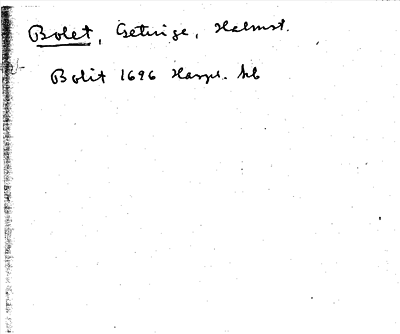 Bolet, Getinge, Halmst.
Bolit 1696 Harpl. hb